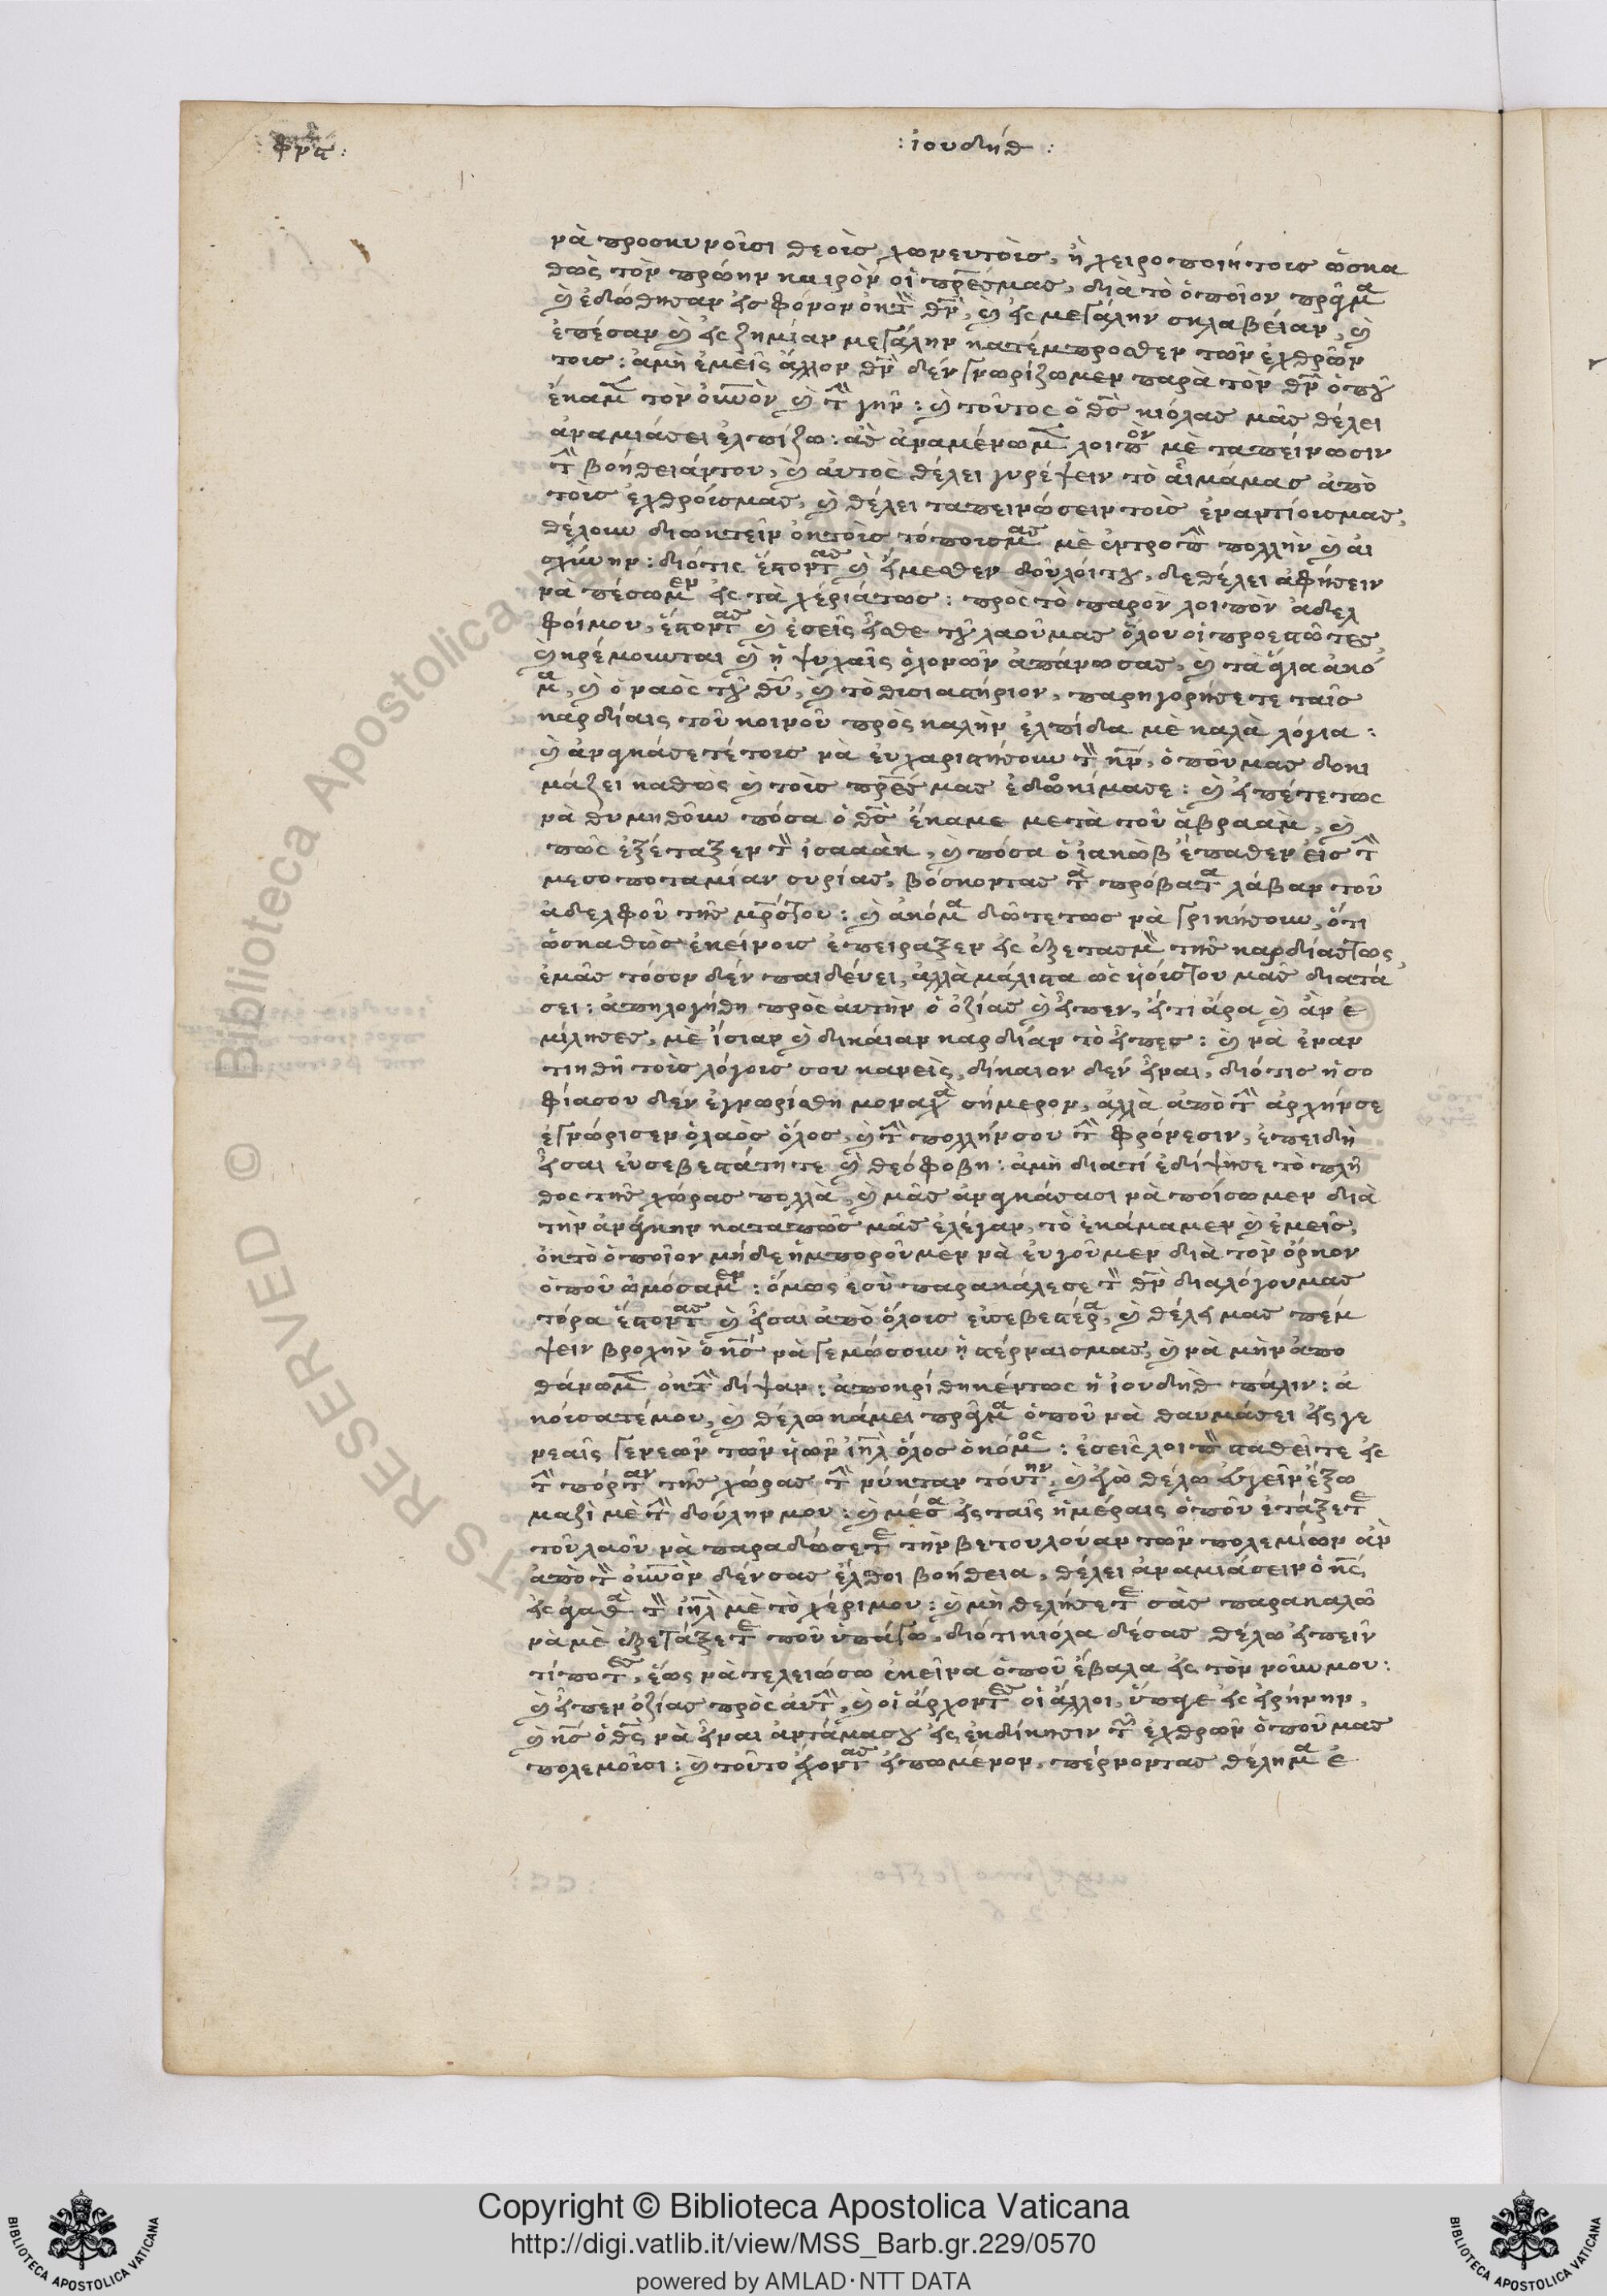 : ἰουδήθ :
νὰ προσκυνοῖσι θεοὶς χωνευτοὶς, ἢ χειροποιήτοις ὥσκα
θὼς τὸν πρώην καιρὸν οἱ πρ̅έσμας, διὰ τὸ ὁποῖον πρᾶμα
ἐδώθησαν εἰς φόνον ἐκ τ̅ θν̅, καὶ εἰς μεγάλην σκλαβείαν, καὶ
ἐπέσαν καὶ εἰς ζημίαν μεγάλην κατέμπροσθεν τῶν ἐχθρῶν
τοις : ἀμὴ ἐμεῖς ἄλλον θν̅ δὲν γνωρίζωμεν παρὰ τὸν θν̅ ὁποῦ
ἔκαμ τὸν οὐ̅νὸν καὶ τ̅ γῆν : καὶ τοῦτος ὁ θς̅ κιόλας μᾶς θέλει
ἀναμιάσει ἐλπίζω : ἂς ἀναμένωμ λοιπὸν μὲ ταπείνωσιν
τ̅ βοήθειάντου, καὶ αὐτὸς θέλει γυρέψειν τὸ αἷμάμας ἀπὸ
τοὶς ἐχθροίσμας, καὶ θέλει ταπεινώσειν τοὶς ἐναντίοισμας,
θέλουν διωκτεῖν ἐκ τοὶς τόποισμας μὲ ἐντροπ̅ πολλὴν καὶ αἰ
σχύνην : διότις ἔστοντας καὶ ἤμεσθεν δοῦλόιτου, δεθέλει ἀφήσειν
νὰ πέσωμεν εἰς τὰ χέριάτως : πρὸς τὸ παρὸν λοιπὸν ἀδελ
φοίμου, ἔστοντας καὶ ἐσεῖς εἶσθε τοῦ λαοῦμας ὅλου οἱ προεστῶτες
καὶ κρέμουνται καὶ ἡ ψυχαῖς ὁλονῶν ἀπάνωσας, καὶ τὰ ἅγια ἀκό
μα, καὶ ὁ ναὸς τοῦ θυ̅, καὶ τὸ θισιαστήριον, παρηγορήσετε ταῖς
καρδίαις τοῦ κοινοῦ πρὸς καλὴν ἐλπίδα μὲ καλὰ λόγια :
καὶ ἀναγκάσετέτοις νὰ εὐχαριστήσουν τ̅ κν̅, ὁποῦμας δοκι
μάζει καθὼς καὶ τοὶς πρ̅ές μας ἐδωκίμασε : καὶ εἰπέτετως
νὰ θυμηθοῦν πόσα ὁ θς̅ ἔκαμε μετὰ τοῦ ἀβραὰμ, καὶ
πῶς ἐξέταξεν τ̅ ἰσαὰκ, καὶ πόσα ὁ ἰακὼβ ἔπαθεν εἰς τ̅
μεσοποταμίαν συρίας, βόσκοντας τὰ πρόβατα λάβαν τοῦ
ἀδελφοῦ τῆς μρ̅ός του : καὶ ἀκόμα δῶτετως νὰ γρικήσουν, ὅτι
ὥσκαθὼς ἐκείνοις ἐπείραξεν εἰς ἐξετασμ̅ τῆς καρδίαςτως,
ἐμᾶς τόσον δὲν παιδεύει, ἀλλὰ μάλιστα ὡς ὑιούς του μᾶς διατά
σει : ἀπηλογήθη πρὸς αὐτὴν ὁ ὀζίας καὶ εἶπεν, εἴτι ἄρα καὶ ἂν ἐ
μίλησες, μὲ ἴσιαν καὶ δικάιαν καρδίαν τὸ εἶπες : καὶ νὰ ἐναν
τιηθῆ τοὶς λόγοις σου κανεὶς, δίκαιον δὲν εἶναι, διότις ἡ σο
φίασου δὲν ἐγνωρίσθη μοναχὰ σήμερον, ἀλλὰ ἀπὸ τ̅ ἀρχήνσε
ἐγνώρισεν ὁλαὸς ὅλος, καὶ τ̅ πολλήνσου τ̅ φρόνεσιν, ἐπειδὴ
εἶσαι εὐσεβεστάτη τε καὶ θεόφοβη : ἀμὴ διατί ἐδίψησε τὸ πλῆ
θος τῆς χώρας πολλὰ, καὶ μᾶς ἀναγκάσασι νὰ ποίσωμεν διὰ
τὴν ἀνάγκην καταπῶς μᾶς ἐλέγαν, τὸ ἐκάμαμεν καὶ ἐμεῖς,
ἐκ τὸ ὁποῖον μήδε ἡμποροῦμεν νὰ ἐυγοῦμεν διὰ τὸν ὅρκον
ὁποῦ ὠμόσαμεν : ὅμως ἐσὺ παρακάλεσε τ̅ θν̅ διαλόγουμας
τόρα ἔστοντας καὶ εἶσαι ἀπὸ ὅλοις εὐσεβεστέρα, καὶ θέλει μας πέμ
ψειν βροχὴν ὁ κς̅ νὰ γεμώσουν ἡ στέρναισμας, καὶ νὰ μὴν ἀπο
θάνωμ ἐκ τ̅ δίψαν : ἀποκρίθηκέντως ἡ ἰουδὴθ πάλιν : ἀ
κοίσατέμου, καὶ θέλω κάμει πρᾶγμα ὁποῦ νὰ θαυμάσει εἰς γε
νεαῖς γενεῶν τῶν ὑιῶν ἰηλ̅ ὅλος ὁκόσμος : ἐσεῖς λοιπ̅ σταθεῖτε εἰς
τ̅ πόρταν τῆς χώρας τ̅ νύκταν τούτην, καὶ ἐγὼ θέλω εὐγεῖν ἔξω
μαζὶ μὲ τ̅ δούλην μου : καὶ μέσα εἰς ταῖς ἡμέραις ὁποῦ ἐτάξετε
τοῦ λαοῦ νὰ παραδώσετε τὴν βετουλούαν τῶν πολεμίων ἀν
ἀπὸ τ̅ οὐ̅νὸν δὲν σας ἔλθοι βοήθεια, θέλει ἀναμιάσειν ὁ κς̅,
τ̅ ἰηλ̅ μὲ τὸ χέριμου : καὶ μὴ θελήσετε σᾶς παρακαλῶ
νὰ μὲ ἐξετάξετε ποῦ ὑπάγω, διότι κιόλα δέσας θέλω εἰπεῖν
τίποτες, ἕως νὰ τελειώσω ἐκεῖνα ὁποῦ ἔβαλα εἰς τὸν νοῦν μου :
καὶ εἶπεν ὀζίας πρὸς αὐτ̅, καὶ οἱ ἄρχοντες οἱ ἄλλοι, ὕπαγε εἰς εἰρήνην,
καὶ κς̅ ὁ θς̅ νὰ εἶναι ἀντάμασου εἰς ἐκδίκησιν τ̅ ἐχθρῶν ὁποῦ μας
πολεμοῖσι : καὶ τοῦτο ἔχοντας εἰπωμένον, πέρνοντας θέλημα ἐ
Copyright © Biblioteca Apostolica Vaticana
http://digi.vatlib.it/view/MSS_Barb.gr.229/0570
powered by AMLAD · NTT DATA